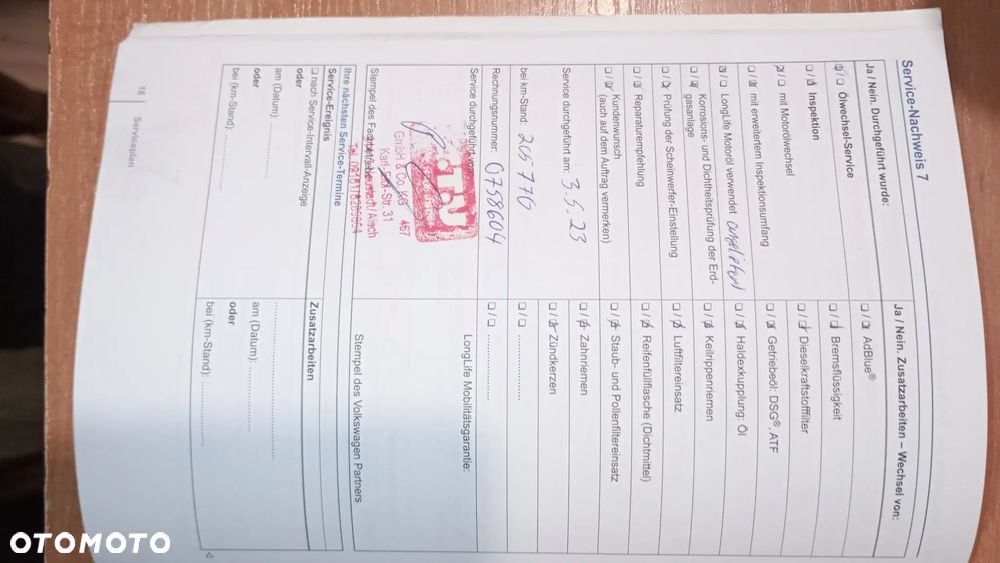 Service-Nachweis 7
Ja / Nein. Durchgeführt wurde:
☐ / ☐ Ölwechsel-Service
☐ / ☐ Inspektion
☐ / ☐ mit Motorölwechsel
☐ / ☐ mit erweitertem Inspektionsumfang
☐ / ☐ LongLife Motoröl verwendet angeliefert
☐ / ☐ Korrosions- und Dichtheitsprüfung der Erd-
gasanlage
☐ / ☐ Prüfung der Scheinwerfer-Einstellung
☐ / ☐ Reparaturempfehlung
☐ / ☐ Kundenwunsch
(auch auf dem Auftrag vermerken)
Service durchgeführt am: 3.5.23
bei km-Stand:
Rechnungsnummer: 0758604
Service durchgeführt von:
GmbH & Co. KG 467
Str. 31
Stempel des Fachbetriebes
Ja / Nein. Zusatzarbeiten – Wechsel von:
☐ / ☐ AdBlue®
☐ / ☐ Bremsflüssigkeit
☐ / ☐ Dieselkraftstofffilter
☐ / ☐ Getriebeöl: DSG®, ATF
☐ / ☐ Haldexkupplung: Öl
☐ / ☐ Keilrippenriemen
☐ / ☐ Luftfiltereinsatz
☐ / ☐ Reifenfüllflasche (Dichtmittel)
☐ / ☐ Staub- und Pollenfiltereinsatz
☐ / ☐ Zahnriemen
☐ / ☐ Zündkerzen
☐ / ☐ ..................
☐ / ☐ ..................
LongLife Mobilitätsgarantie:
Stempel des Volkswagen Partners
Ihre nächsten Service-Termine
Service-Ereignis
☐ nach Service-Intervall-Anzeige
oder
am (Datum): ..................
oder
bei (km-Stand): ..................
Zusatzarbeiten
..................
am (Datum): ..................
oder
bei (km-Stand): ..................
18 Serviceplan
OTOMOTO